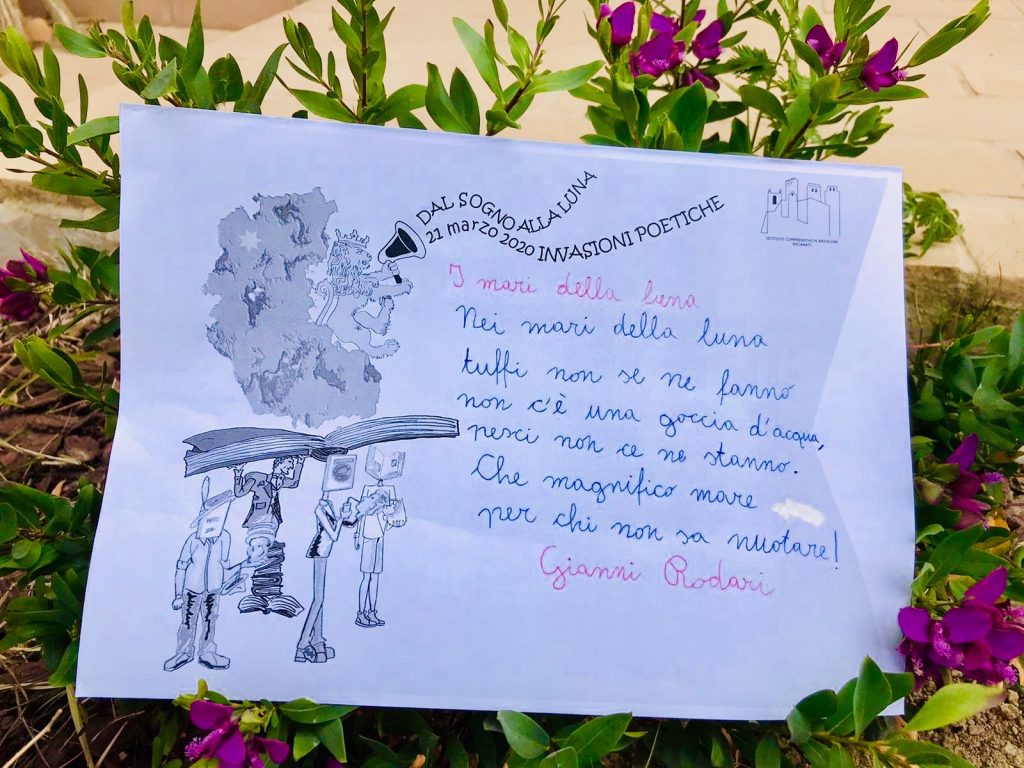 DAL SOGNO ALLA LUNA
21 marzo 2020 INVASIONI POETICHE
ISTITUTO COMPRENSIVO N. BADALONI
RECANATI
I mari della luna
Nei mari della luna
tuffi non se ne fanno
non c'è una goccia d'acqua,
pesci non ce ne stanno.
Che magnifico mare
per chi non sa nuotare!
Gianni Rodari